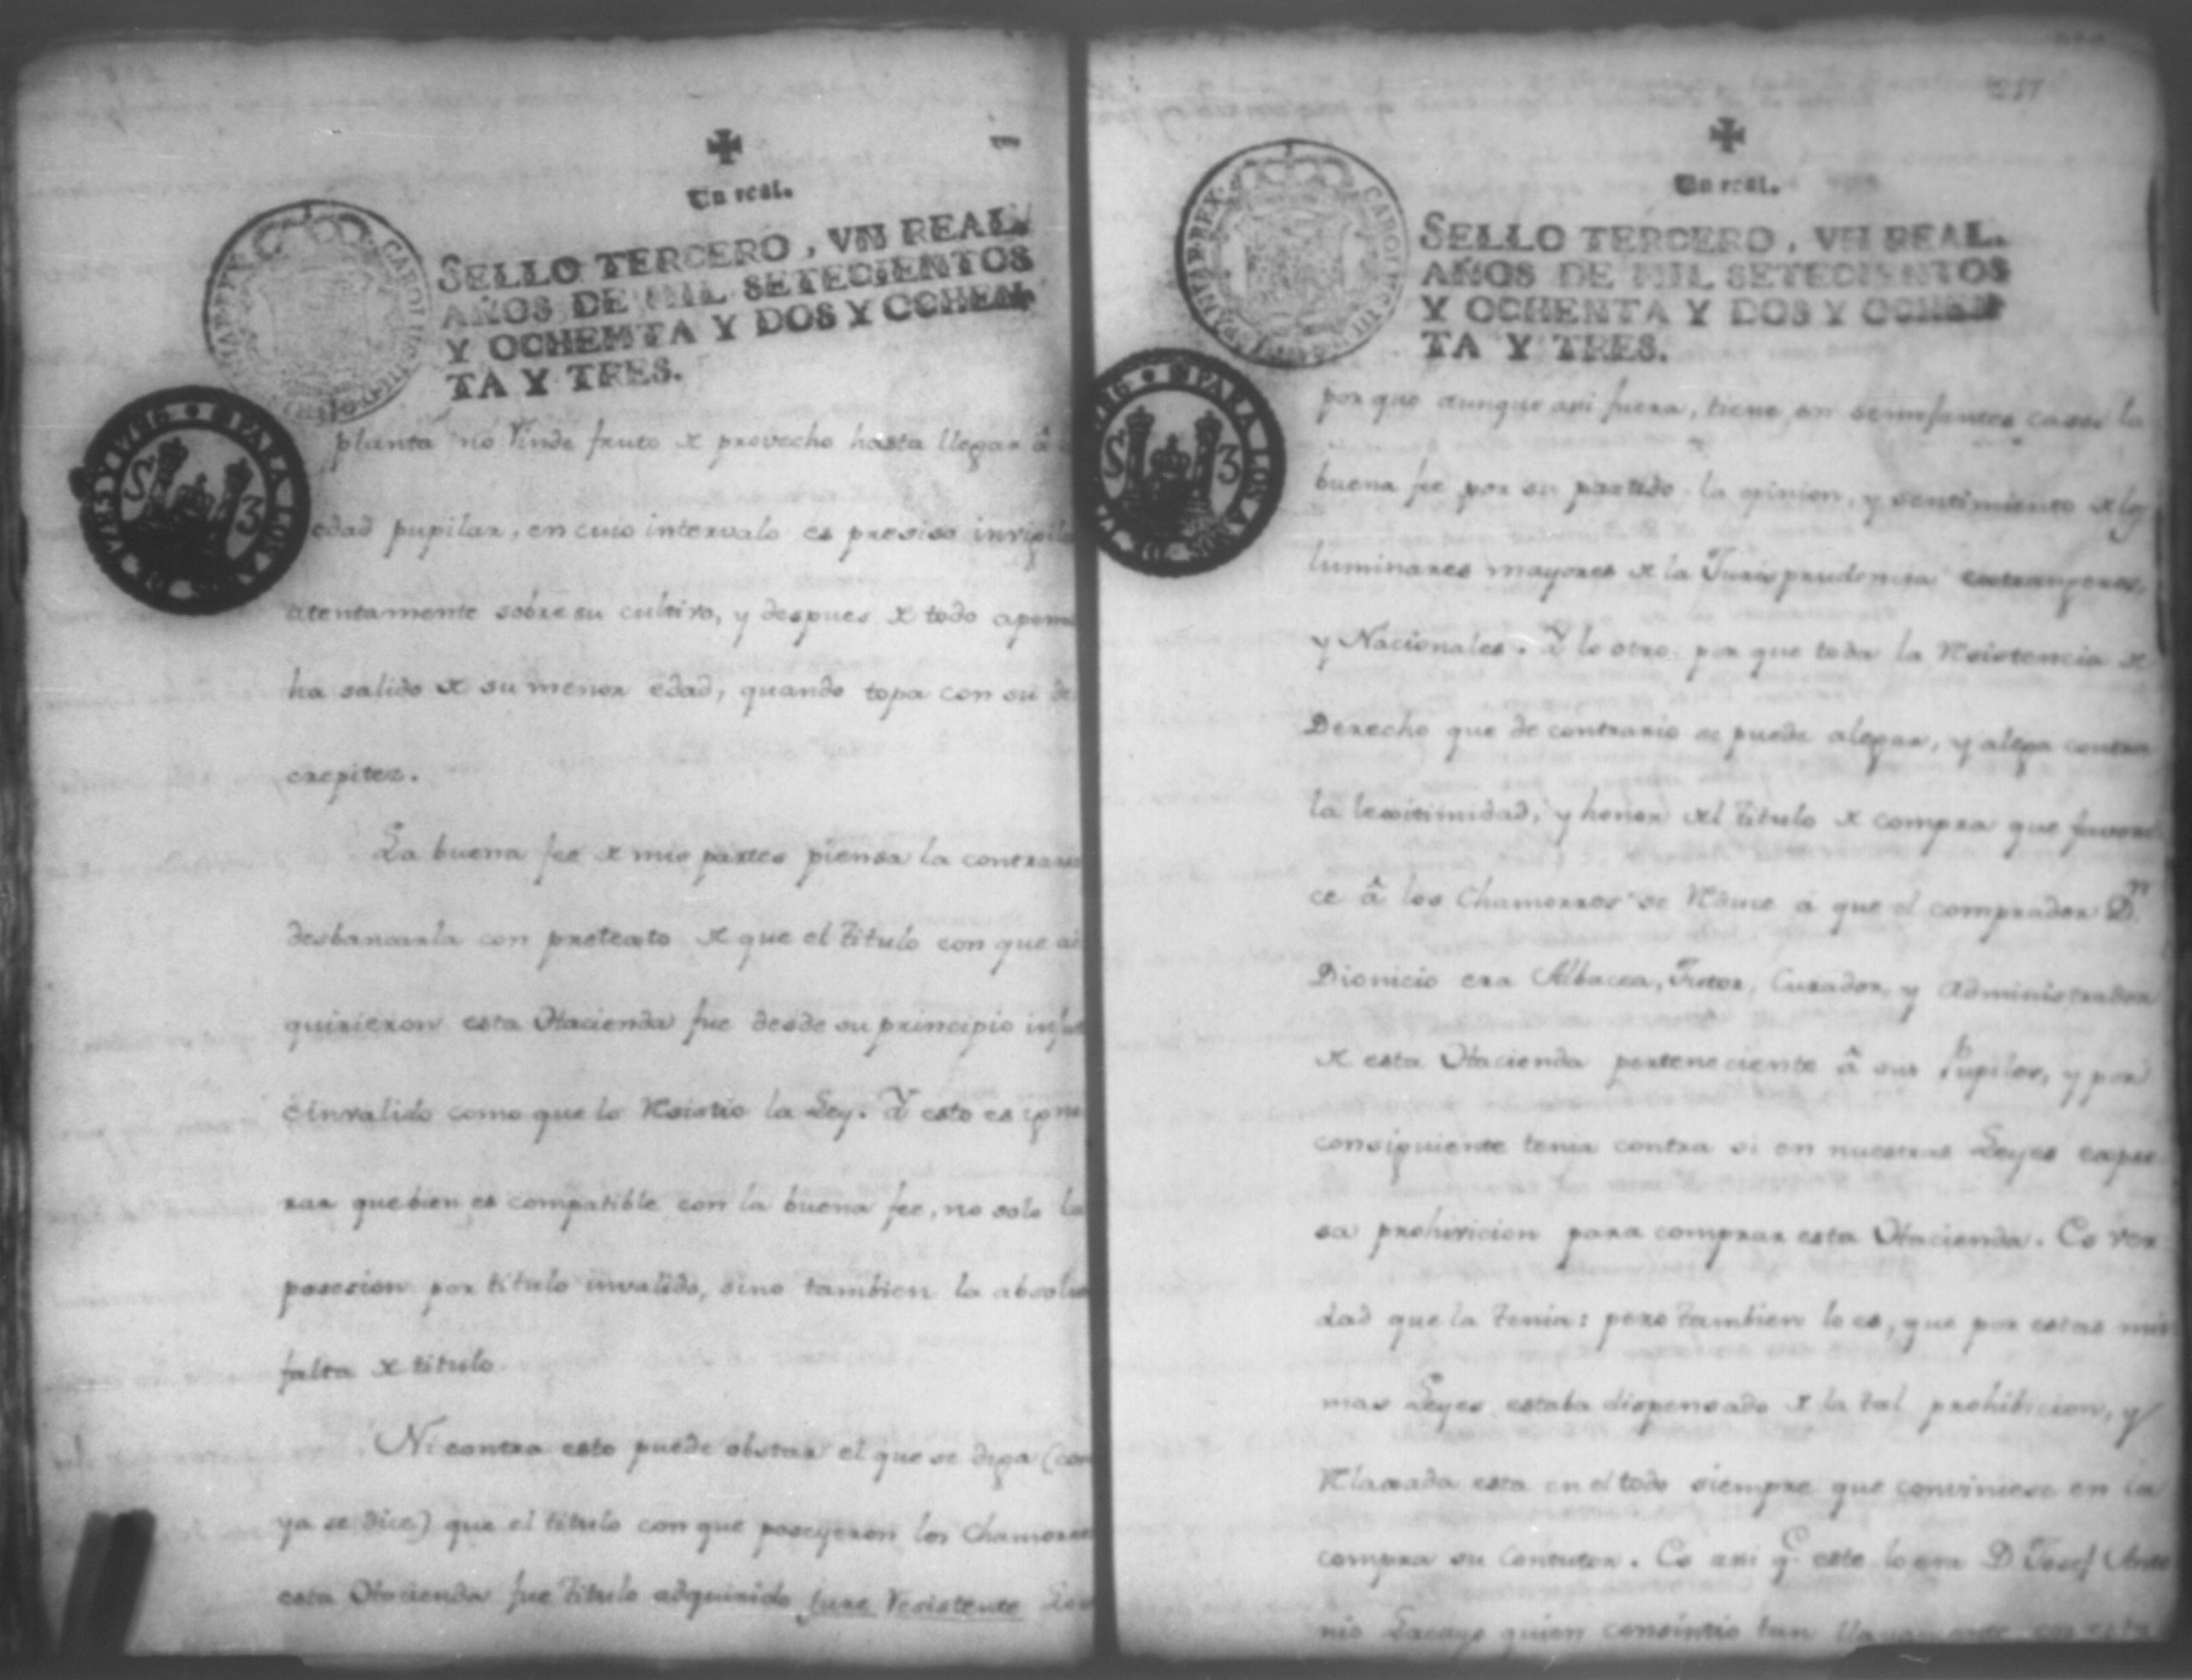 Un real.
SELLO TERCERO, VN REAL.
AÑOS DE MIL SETECIENTOS
Y OCHENTA Y DOS Y OCHEN
TA Y TRES.
planta no rinde fruto de provecho hasta llegar â
edad pupilar, en cuio intervalo es presiso invigila
atentamente sobre su cultivo, y despues de todo apena
ha salido de su menor edad, quando topa con su de
crepitez.
La buena fee de mis partes piensa la contraria
desbancarla con pretexto de que el titulo con que ad
quirieron esta Hacienda fue desde su principio
é invalido como que lo resistio la Ley. Y esto es igno
rar que bien es compatible con la buena fee, no solo la
posesion por titulo invalido, sino tambien la absolu
falta de titulo.
Ni contra esto puede obstar el que se diga (com
ya se dice) que el titulo con que poseyeron los Chamorro
esta Hacienda fue titulo adquirido jure resistente
257
Un real.
SELLO TERCERO, VN REAL.
AÑOS DE MIL SETECIENTOS
Y OCHENTA Y DOS Y OCHEN
TA Y TRES.
por que aunque asi fuera, tiene en semejantes casos la
buena fee por su partido la opinion, y sentimiento de los
luminares mayores de la Jurisprudencia extrangeros,
y Nacionales. Y lo otro: por que toda la resistencia de
Derecho que de contrario se puede alegar, y alega contra
la legitimidad, y honor del titulo de compra que favore
ce â los Chamorros se reduce á que el comprador Dn.
Dionicio era Albacea, Tutor, Curador, y Administrador
de esta Hacienda perteneciente â sus Pupilos, y por
consiguiente tenia contra si en nuestras Leyes expre
sa prohivicion para comprar esta Hacienda. Es ver
dad que la tenia: pero tambien lo es, que por estas mis
mas Leyes estaba dispensado de la tal prohibicion, y
relaxada esta en el todo siempre que conviniese en la
compra su Contutor. Es asi q.e este lo era D. Josef Anto
nio Lacayo quien consintio tan llanamente en esta